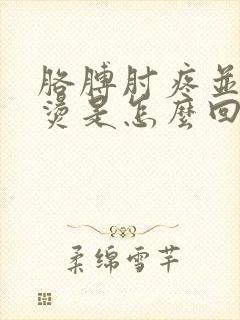 胳膊肘疼並
燙是怎麼回
柔綿雪芊